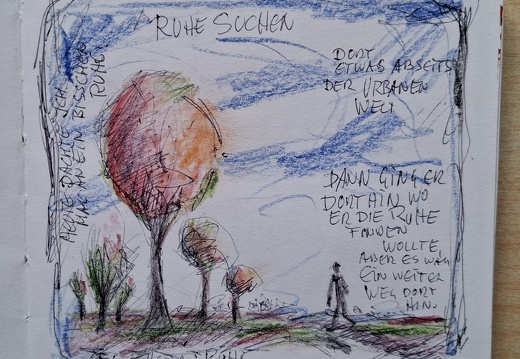 RUHE SUCHEN
DORT
ETWAS ABSEITS
DER URBANEN
WELT
DANN GING ER
DORTHIN WO
ER DIE RUHE
FINDEN
WOLLTE
ABER ES WAR
EIN WEITER
WEG DORT
HIN.
DACHTE ICH
MAL AN EIN BISSCHEN
RUHE.